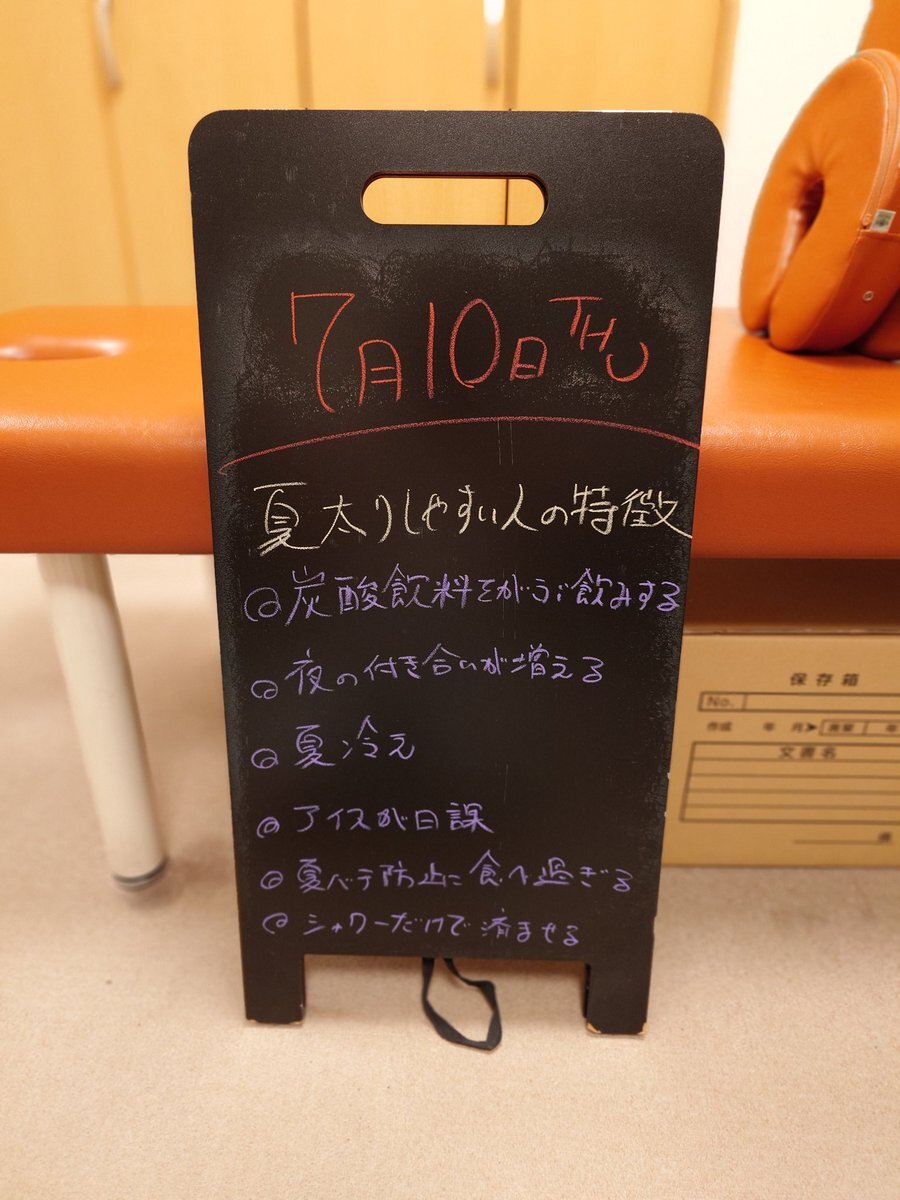 7月10日THU
夏太りしやすい人の特徴
◎炭酸飲料をがぶ飲みする
◎夜の付き合いが増える
◎夏冷え
◎アイスが日課
◎夏バテ防止に食べ過ぎる
◎シャワーだけで済ませる
保存箱
No.
作成 年 月
年
文書名